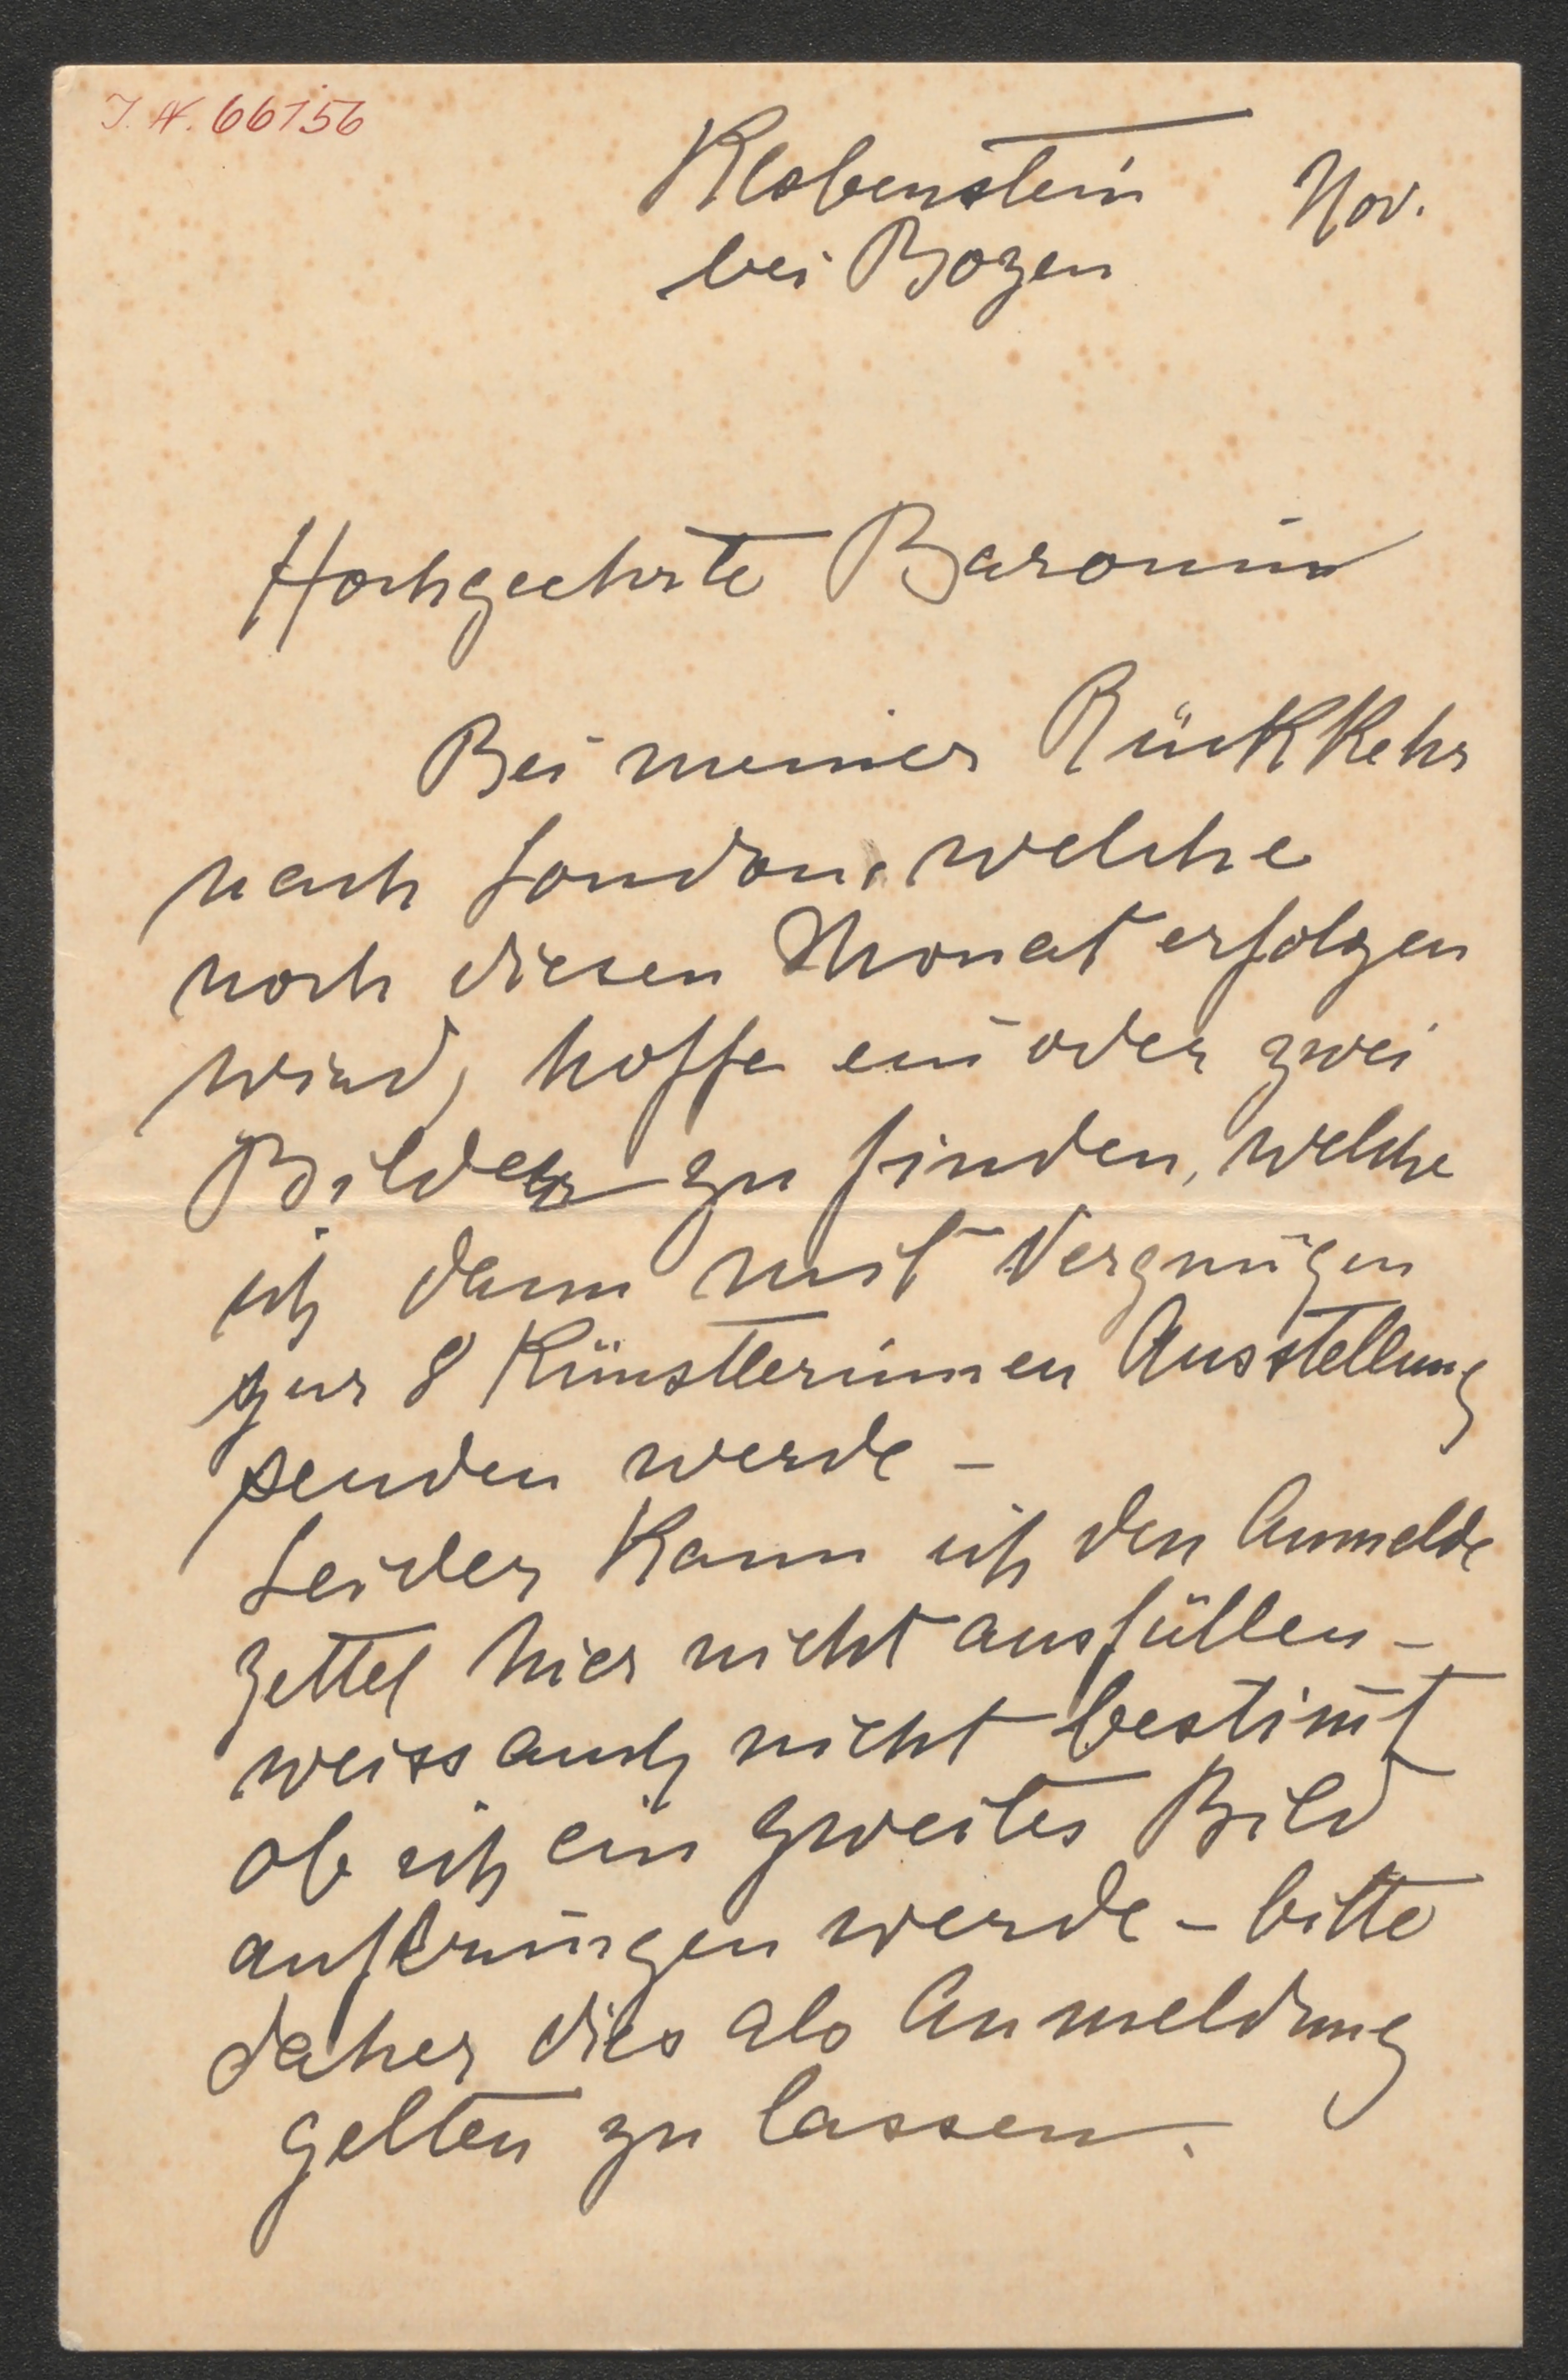 I. N. 66156
Klobenstein Nov.
bei Bozen
Hochgeehrte Baronin
Bei meiner Rückkehr
nach London, welche
noch diesen Monat erfolgen
wird, hoffe ein oder zwei
Bilder zu finden, welche
ich dann mit Vergnügen
zur 8 Künstlerinnen Ausstellung
senden werde –
Leider kann ich den Anmelde
zettel hier nicht ausfüllen –
weiss auch nicht bestim̅t
ob ich ein zweites Bild
aufbringen werde – bitte
daher dies als Anmeldung
gelten zu lassen.